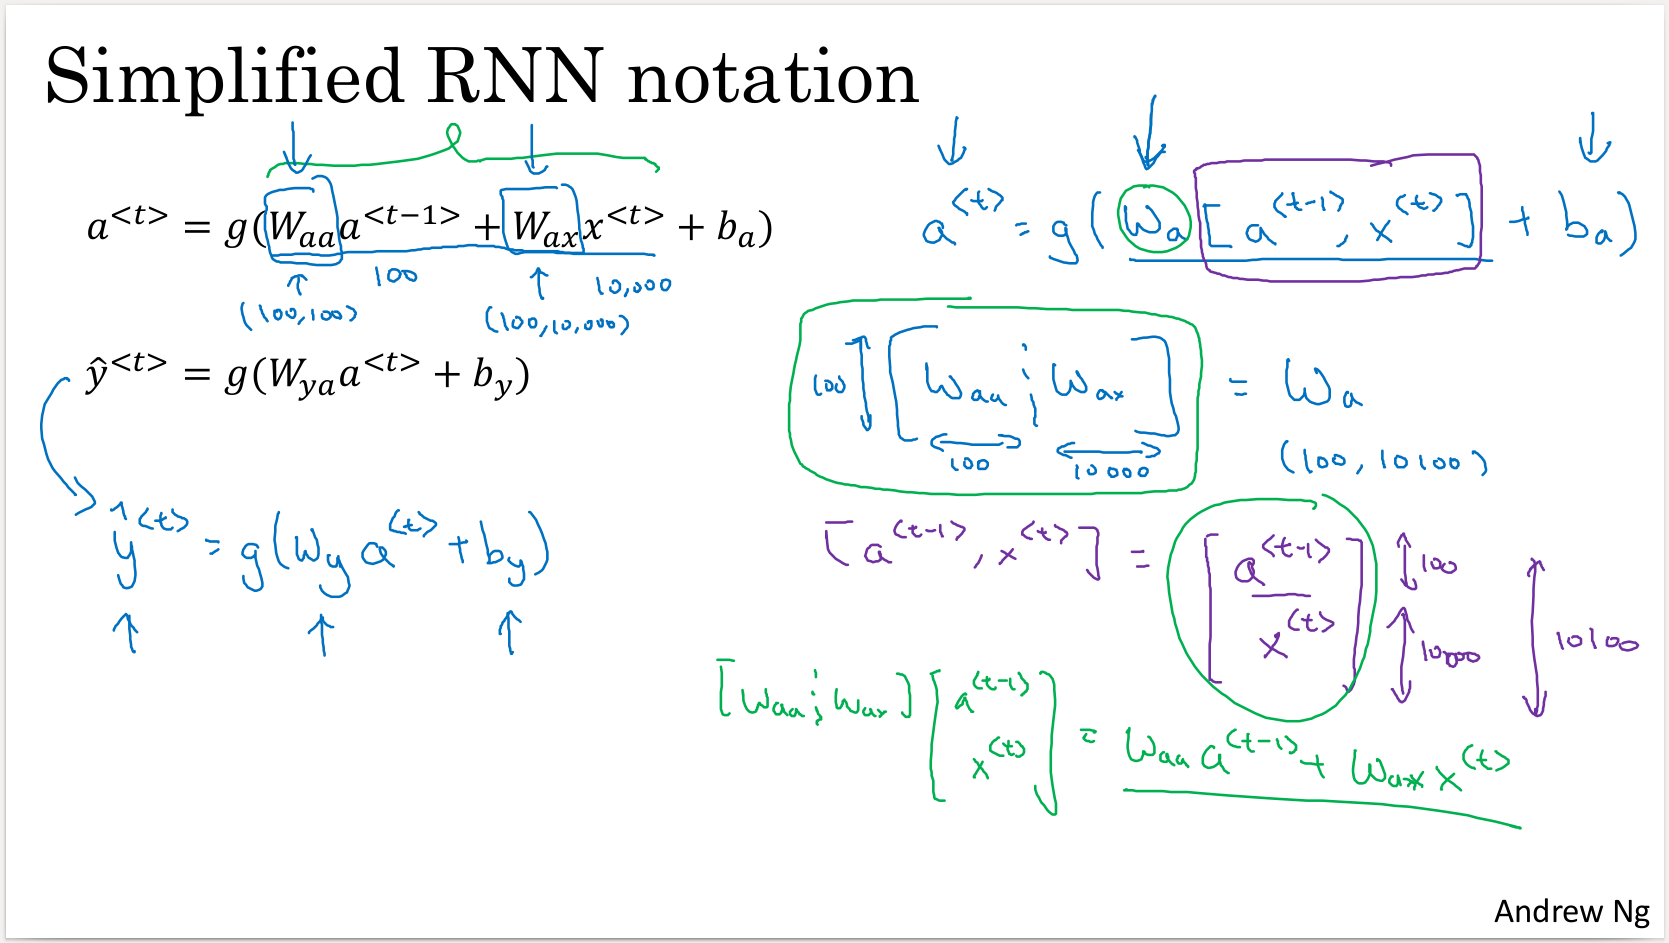 Simplified RNN notation
a^{<t>} = g(W_{aa}a^{<t−1>} + W_{ax}x^{<t>} + b_a)
100
10,000
(100,100)
(100,10,000)
ŷ^{<t>} = g(W_{ya}a^{<t>} + b_y)
ŷ^{<t>} = g(W_y a^{<t>} + b_y)
a^{<t>} = g(W_a [a^{<t-1>}, x^{<t>}] + b_a)
100 [W_{aa} ¦ W_{ax}] = W_a
100 10000 (100, 10100)
[a^{<t-1>}, x^{<t>}] = [a^{<t-1>} 100
x^{<t>}] 10000 10100
[W_{aa} ¦ W_{ax}] [a^{<t-1>}
x^{<t>}] = W_{aa} a^{<t-1>} + W_{ax} x^{<t>}
Andrew Ng